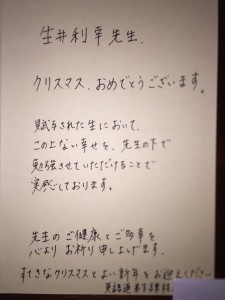 生井利幸先生、
クリスマス、おめでとうございます。
賦与された生において、
この上ない幸せを、先生の下で
勉強させていただけることで
実感しております。
先生のご健康とご多幸を
心よりお祈り申し上げます。
すてきなクリスマスとよい新年をお迎えください
英語道